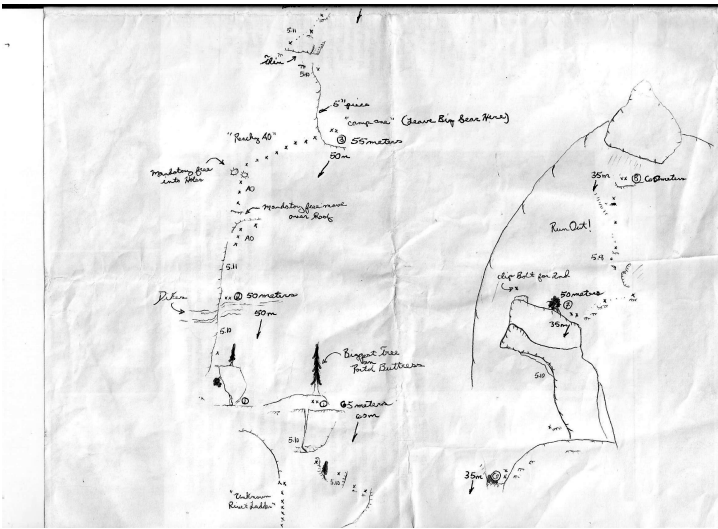 5.11
Thin
5.10
5" piece
"Camp one" (Leave Big Gear Here)
"Reachy A0"
3 55 meters
50m
Mandatory free
into Holes
A0
Mandatory free move
over Roof
A0
5.11
Dikes
2 50 meters
50m
5.10
Biggest Tree
on
Portal Buttress
1
1 65 meters
60m
5.10
5.10
"Unknown
Rivet Ladder"
35m
5 60 meters
Run Out!
5.9
clip Bolt for 2nd
50 meters
35m
5.10
35m